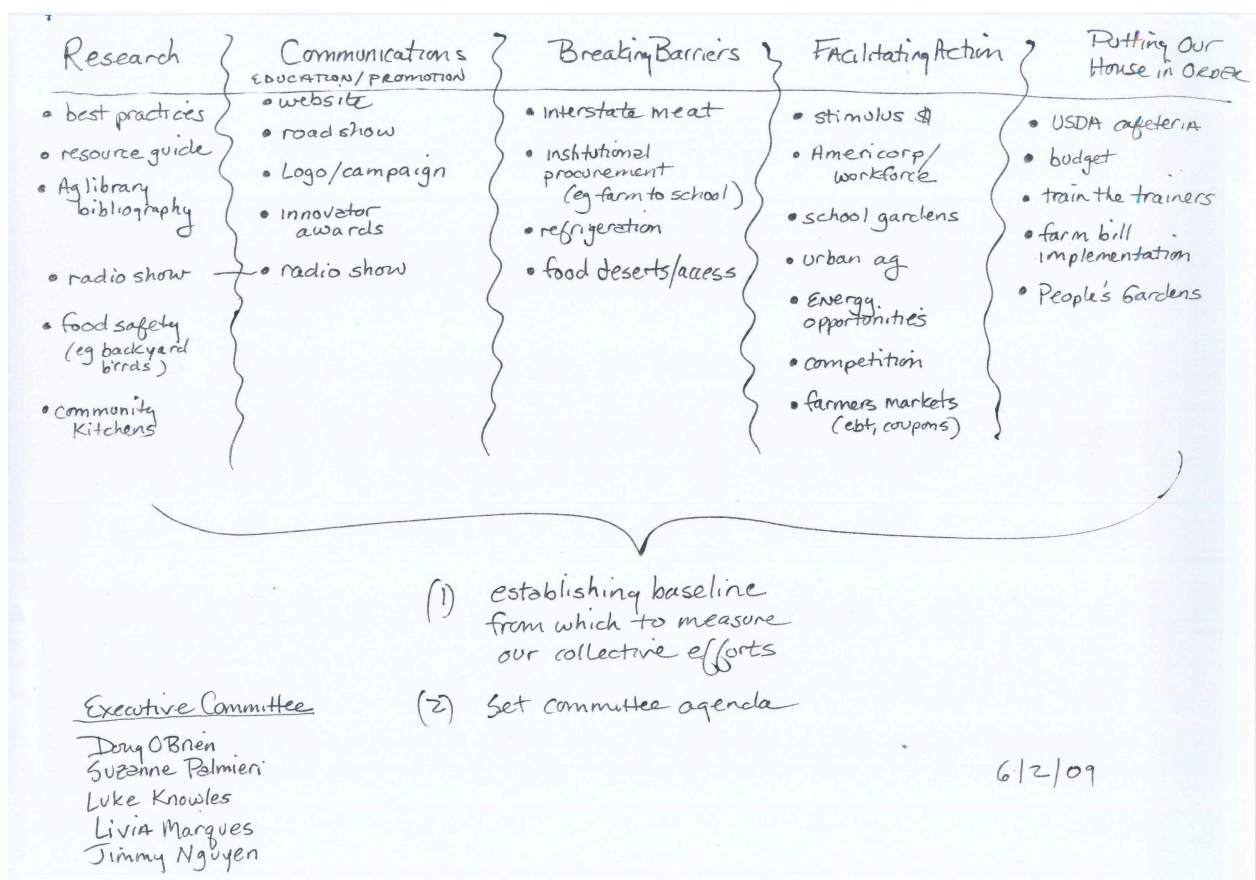 Research
• best practices
• resource guide
• Ag library
bibliography
• radio show
• food safety
(eg backyard
birds)
• community
Kitchens
Communications
EDUCATION/PROMOTION
• website
• road show
• Logo/campaign
• innovator
awards
• radio show
Breaking Barriers
• Interstate meat
• institutional
procurement
(eg farm to school)
• refrigeration
• food deserts/access
Facilitating Action
• stimulus $
• Americorp/
workforce
• school gardens
• urban ag
• Energy
opportunities
• competition
• farmers markets
(ebt, coupons)
Putting Our
House in Order
• USDA cafeteria
• budget
• train the trainers
• farm bill
implementation
• People's Gardens
(1) establishing baseline
from which to measure
our collective efforts
(2) Set committee agenda
Executive Committee
Doug OBrien
Suzanne Palmieri
Luke Knowles
Livia Marques
Jimmy Nguyen
6/2/09